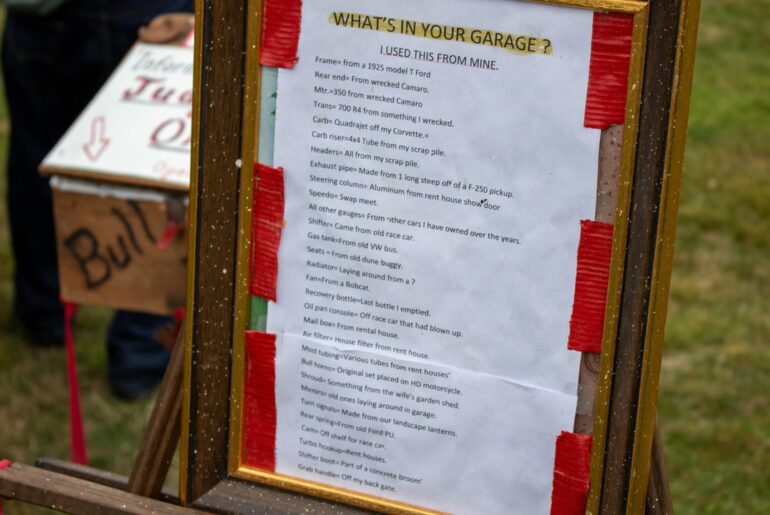 WHAT'S IN YOUR GARAGE ?
I USED THIS FROM MINE.
Frame= from a 1925 model T Ford
Rear end= From wrecked Camaro.
Mtr.=350 from wrecked Camaro
Trans= 700 R4 from something I wrecked.
Carb= Quadrajet off my Corvette.=
Carb riser=4x4 Tube from my scrap pile.
Headers= All from my scrap pile.
Exhaust pipe= Made from 1 long steep off of a F-250 pickup.
Steering column= Aluminum from rent house show door
Speedo= Swap meet.
All other gauges= From other cars I have owned over the years.
Shifter= Came from old race car.
Gas tank=From old VW bus.
Seats = From old dune buggy.
Radiator= Laying around from a ?
Fan=From a Bobcat.
Recovery bottle=Last bottle I emptied.
Oil pan console= Off race car that had blown up.
Mail box= From rental house.
Air filter= House filter from rent house.
Most tubing=Various tubes from rent houses'
Bull horns= Original set placed on HD motorcycle.
Shroud= Something from the wife's garden shed.
Mirrors= old ones laying around in garage.
Turn signals= Made from our landscape lanterns.
Rear spring=From old Ford PU.
Cam= Off shelf for race car.
Turbo hookup=Rent houses.
Shifter boot= Part of a concrete broom'
Grab handle= Off my back gate.
Bull